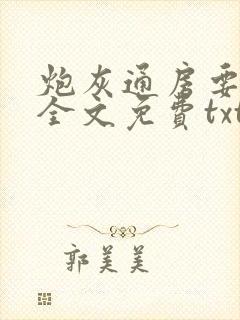 炮灰通房要
全文免費txt
郭美美